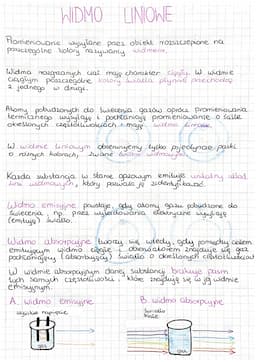 WIDMO LINIOWE
Promieniowanie wysyłane przez obiekt rozszczepione na
poszczególne kolory nazywamy widmem.
Widma rozgrzanych ciał mają charakter ciągły. W widmie
ciągłym poszczególne kolory światła płynnie przechodzą
z jednego w drugi.
Atomy pobudzonych do świecenia gazów oprócz promieniowania
termicznego wysyłają i pochłaniają promieniowanie o ściśle
określonych częstotliwościach i mają widmo liniowe.
W widmie liniowym obserwujemy tylko pojedyncze paski
o różnych kolorach, zwane liniami widmowymi.
Każda substancja w stanie gazowym emituje unikalny układ
linii widmowych, który pozwala ją zidentyfikować.
Widmo emisyjne powstaje, gdy atomy gazu pobudzone do
świecenia, np. przez wyładowania elektryczne wysyłają
(emitują) światło.
Widmo absorpcyjne tworzy się wtedy, gdy pomiędzy ciałem
emitującym widmo ciągłe i obserwatorem znajduje się gaz
pochłaniający (absorbujący) światło o określonych częstotliwościach
W widmie absorpcyjnym danej substancji brakuje pasm
tych samych częstotliwości, które znajdują się w jej widmie
emisyjnym.
A. widmo emisyjne B. widmo absorpcyjne
wysokie napięcie
światło
białe